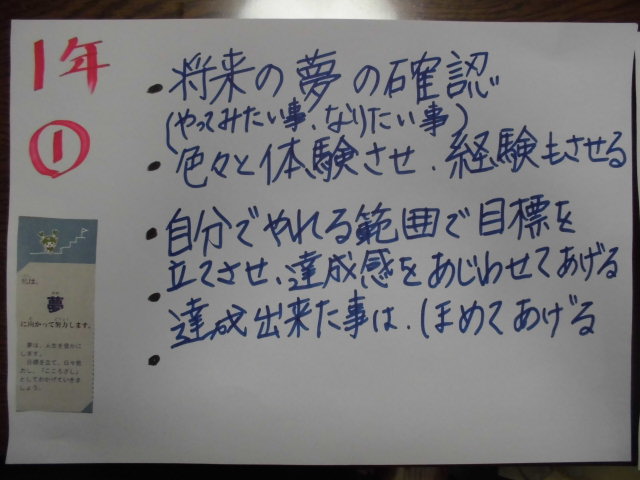 1年
①
・将来の夢の確認
(やってみたい事、なりたい事)
・色々と体験させ、経験もさせる
・自分でやれる範囲で目標を
立てさせ、達成感をあじわせてあげる
・達成出来た事は、ほめてあげる
・
私は、
夢
に向かって努力します。
夢は、人生を豊かに
します。
目標を立て、日々努
力し、「こころざし」
としてかかげていきま
しょう。